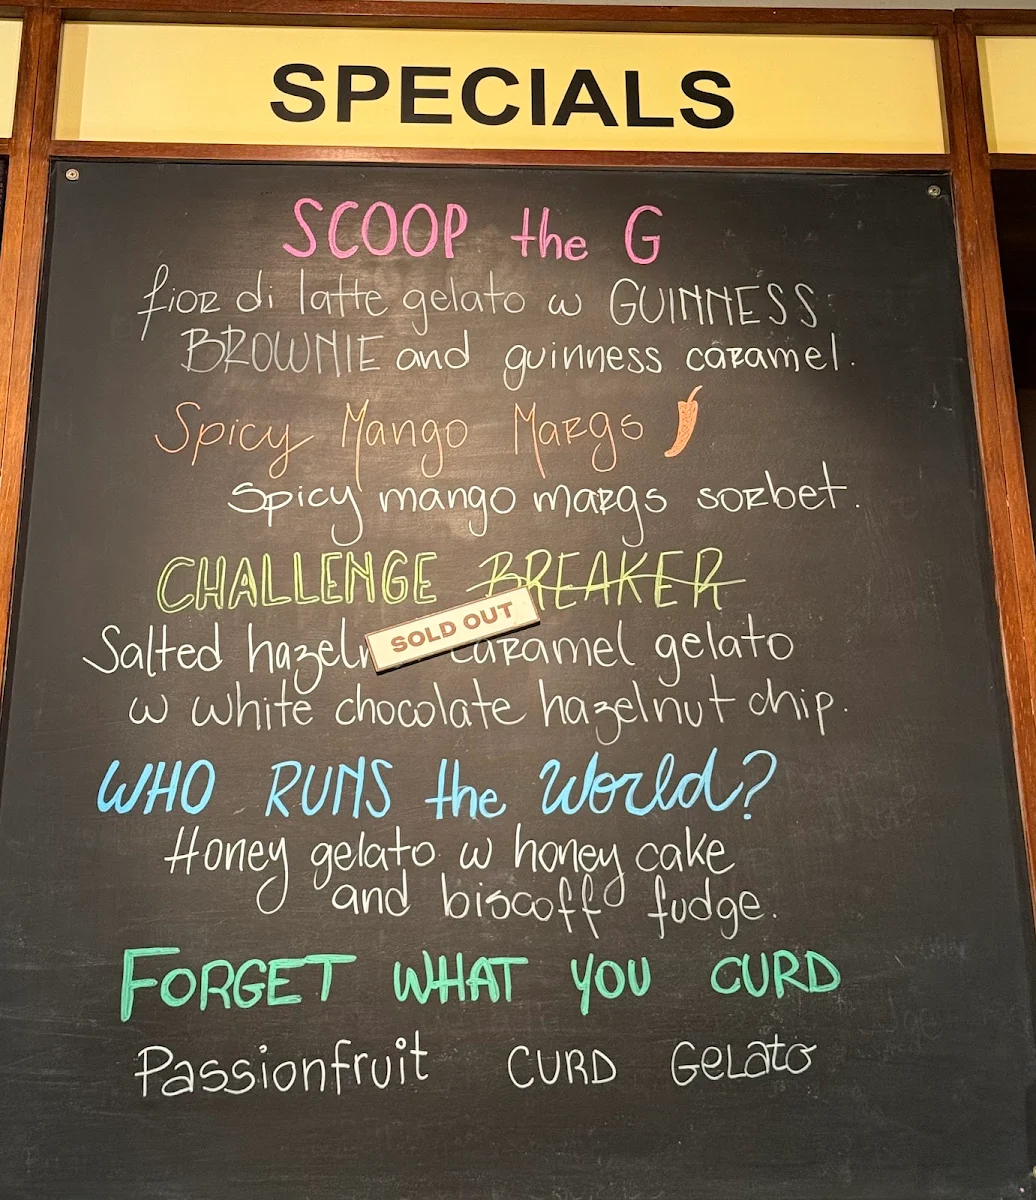 SPECIALS
SCOOP the G
fior di latte gelato w GUINNESS
BROWNIE and guinness caramel.
Spicy Mango Margs
Spicy mango margs sorbet.
CHALLENGE BREAKER
SOLD OUT
Salted caramel gelato
w white chocolate hazelnut chip.
WHO RUNS the World?
Honey gelato w honey cake
and biscoff fudge.
FORGET WHAT YOU CURD
Passionfruit CURD Gelato